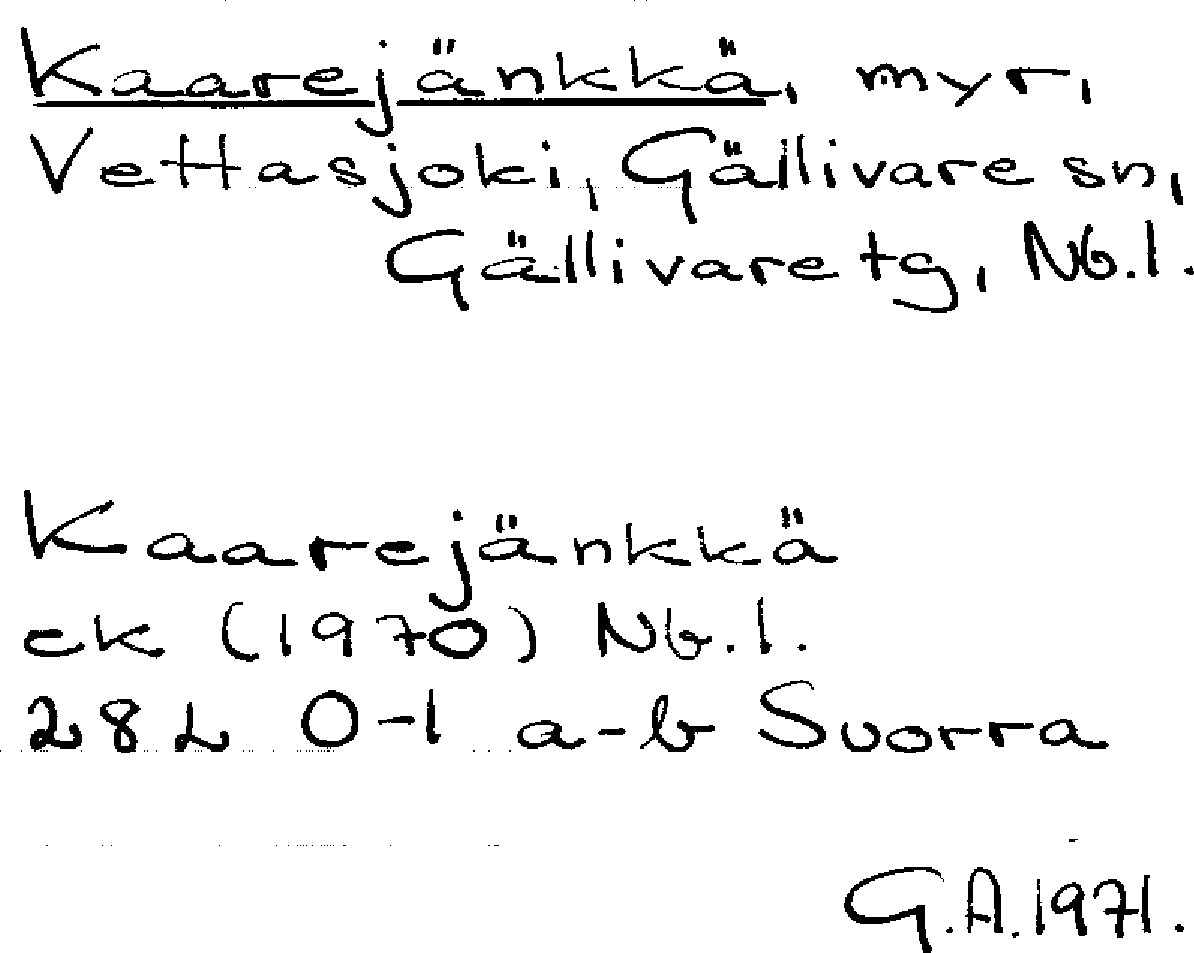 Kaarejänkkä, myr,
Vettasjoki, Gällivare sn,
Gällivare tg, Nb.l.
Kaarejänkkä
ek (1970) Nb.l.
28L 0-1 a-b Suorra
G.A. 1971.